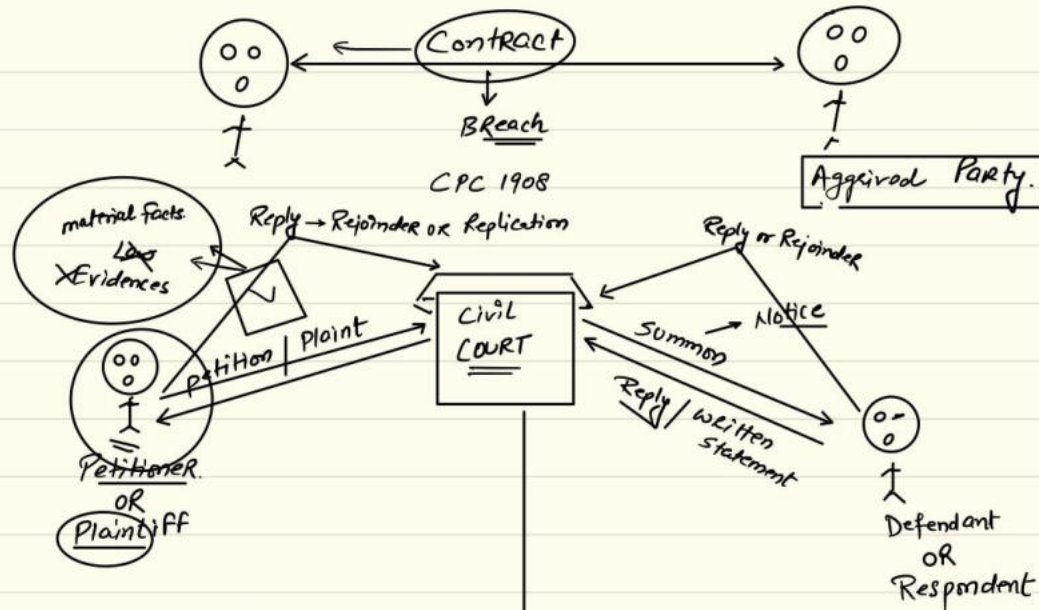 Contract
BReach
CPC 1908
Aggeived Party.
material facts
Law
XEvidences
Reply → Rejoinder OR Replication
Reply or Rejoinder
Petition | Plaint
Civil
COURT
Summon → Notice
Reply / written
statement
PetitioneR.
OR
Plaintiff
Defendant
OR
Respondent